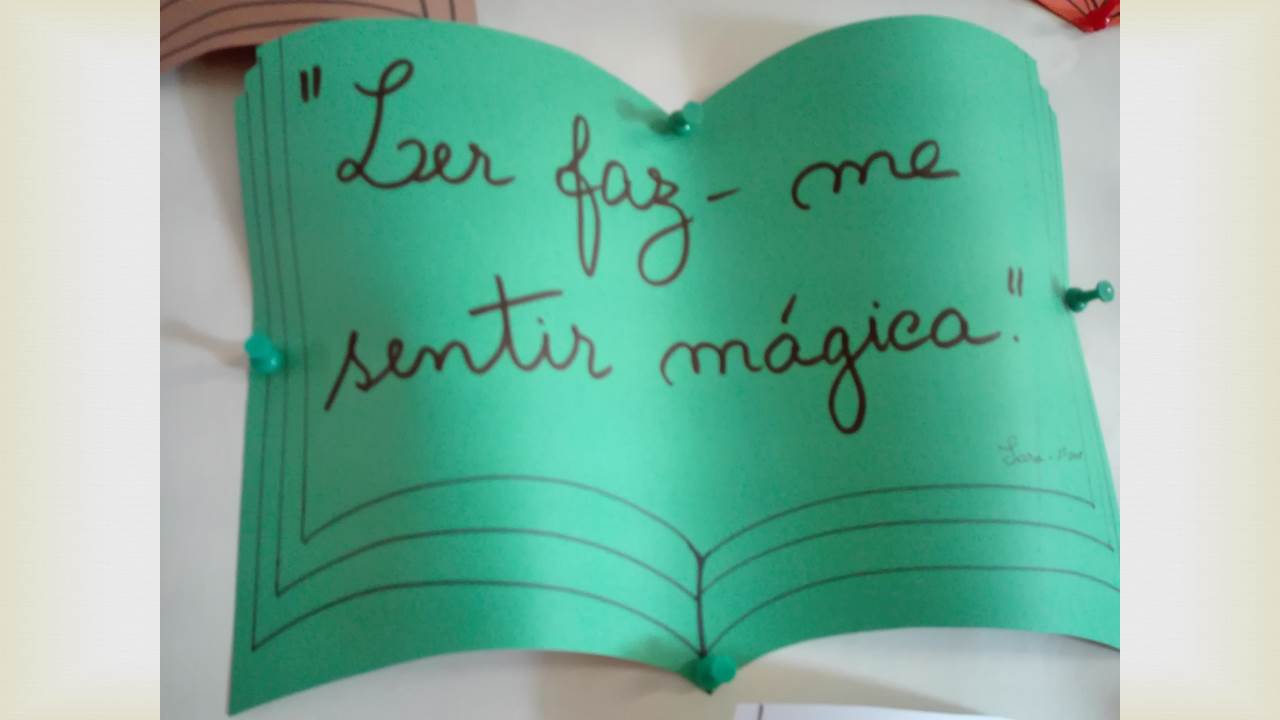 "Ler faz-me
sentir mágica."
Sara -